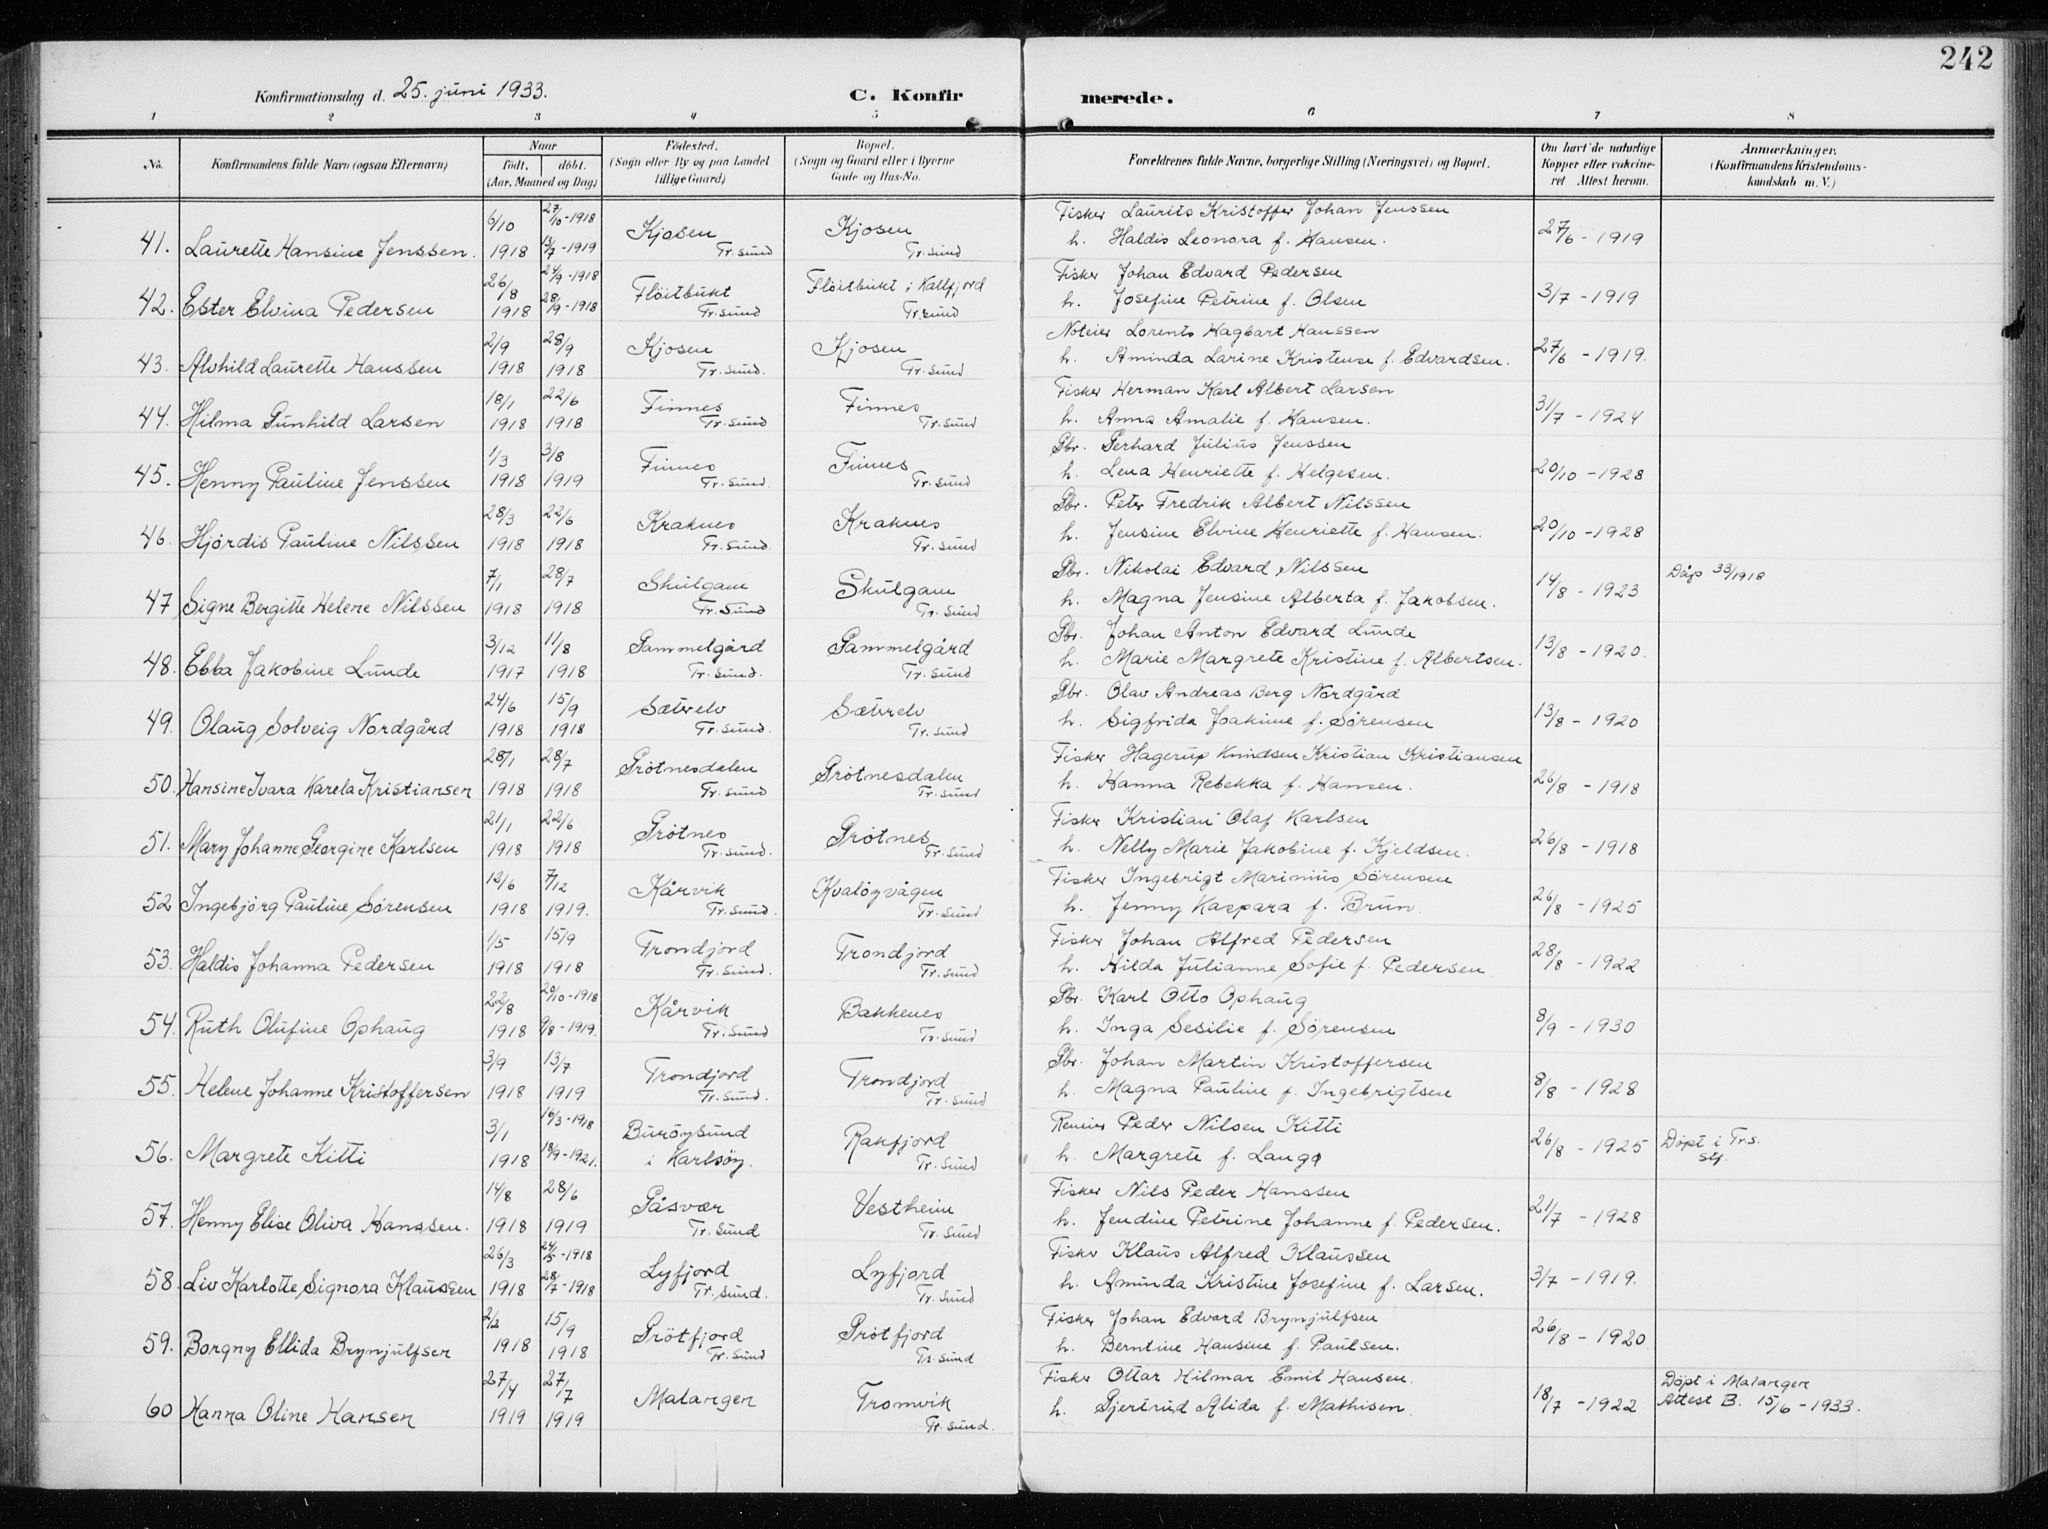 242
Konfirmationsdag d. 25. juni 1933. C. Konfir merede.
1 2 3 4 5 6 7 8
No. Konfirmandens fulde Navn (ogsaa Efternavn) Naar født, døbt. (Aar, Maaned og Dag) Fødested. (Sogn eller By og paa Landet tillige Gaard) Bopæl. (Sogn og Gaard eller i Byerne Gade og Hus-No. Forældrenes fulde Navne, borgerlige Stilling (Næringsvei) og Bopæl. Om havt de naturlige Kopper eller vakcineret Attest herom. Anmærkninger. (Konfirmandens Kristendomskundskab m. V.)
6/10 27/10-1918 Kjosen Kjosen Fisker Laurits Kristoffer Johan Jenssen
41. Laurette Hansine Jenssen. 1918 13/7-1919 Tr.sund Tr.sund h. Haldis Leonora f. Hansen. 27/6-1919
26/8 24/9-1918 Fløitbukt Fløitbukt i Kattfjord Fisker Johan Edvard Pedersen
42. Ester Elvina Pedersen 1918 28/9-1918 Tr.sund Tr.sund h. Josefine Petrine f. Olsen 3/7-1919
2/9 28/9 Kjosen Kjosen Noteier Lorents Hagbart Hanssen
43. Alvhild Laurette Hanssen 1918 1918 Tr.sund. Tr.sund h. Aminda Larine Kristense f. Edvardsen. 27/6-1919.
18/1 22/6 Finnes Finnes Fisker Herman Karl Albert Larsen
44. Hilma Gunhild Larsen 1918 1918 Tr.sund Tr.sund h. Anna Amalie f. Hansen. 31/7-1924
1/3 3/8 Finnes Finnes Gbr. Gerhard Julius Jenssen
45. Henny Pauline Jenssen 1918 1919 Tr.sund. Tr.sund h. Lena Henriette f. Helgesen. 20/10-1928
28/3 22/6 Kraknes Kraknes Gbr. Peter Fredrik Albert Nilssen
46. Hjördis Pauline Nilssen 1918 1918 Tr.sund. Tr.sund h. Jensine Elvine Henriette f. Hansen. 20/10-1928
7/1 28/7 Skulgam Skulgam Gbr. Nikolai Edvard Nilssen Dåp 33/1918
47 Signe Bergitte Helene Nilssen 1918 1918 Tr.sund Tr.sund h. Magna Jensine Alberta f. Jakobsen. 14/8-1923
3/12 11/8 Gammelgård Gammelgård Gbr. Johan Anton Edvard Lunde
48. Ebba Jakobine Lunde 1917 1918 Tr.sund. Tr.sund h. Marie Margrete Kristine f. Albertsen. 13/8-1920.
24/6 15/9 Sætrelv Sætrelv Gbr. Olav Andreas Berg Nordgård
49. Olaug Solveig Nordgård 1918 1918 Tr.sund. Tr.sund h. Sigfrida Joakime f. Sørensen 13/8-1920
28/1 28/7 Grøtnesdalen Grøtnesdalen Fisker Hagerup Knudsen Kristian Kristiansen
50. Hansine Ivara Karela Kristiansen 1918 1918 Tr.sund Tr.sund h. Hanna Rebekka f. Hansen. 26/8-1918
21/1 22/6 Grøtnes Grøtnes Fisker Kristian Olaf Karlsen
51. Mary Johanne Georgine Karlsen 1918 1918 Tr.sund. Tr.sund h. Nelly Marie Jakobine f. Kjeldsen. 26/8-1918
12/6 7/12 Kårvik Kvalöyvågen Fisker Ingebrigt Marinius Sørensen
52 Ingebjörg Pauline Sørensen 1918 1919. Tr.sund. Tr.sund h. Jenny Kaspara f. Brun. 26/8-1925
1/5 15/9 Trondjord Trondjord Fisker Johan Alfred Pedersen
53. Haldis Johanna Pedersen 1918 1918 Tr.sund. Tr.sund h. Hilda Julianne Sofie f. Pedersen 28/8-1922
22/8 20/10-1918 Kårvik Bakkenes Gbr. Karl Otto Ophaug
54. Ruth Olufine Ophaug 1918 9/8-1919. Tr.sund Tr.sund h. Inga Sesilie f. Sörensen 8/9-1930
3/9 13/7 Trondjord Trondjord Gbr. Johan Martin Kristoffersen
55. Helene Johanne Kristoffersen 1918 1919 Tr.sund. Tr.sund h. Magna Pauline f. Ingebrigtsen 8/8-1928
3/1 16/3-1918 Burøysund Rakfjord Reneier Peder Nilsen Kitti
56. Margrete Kitti 1918 18/9-1921. i Karlsöy. Tr.sund h. Margrete f. Lango 26/8-1925 Döpt i Tr.s.
14/8 28/6 Gåsvær Vestheim Fisker Nils Peder Hanssen
57. Henny Elise Oliva Hanssen. 1918 1919 Tr.sund Tr.sund h. Jendine Petrine Johanne f. Pedersen. 21/7-1928
26/3 24/5-1918 Lyfjord Lyfjord Fisker Klaus Alfred Klaussen
58. Liv Karlotte Signora Klaussen 1918 28/7-1918 Tr.sund. Tr.sund h. Aminda Kristine Josefine f. Larsen. 3/7-1919.
2/2 15/9 Grötfjord Grötfjord Fisker Johan Edvard Brynjulfsen
59. Borgny Ellida Brynjulfsen 1918 1918 Tr.sund Tr.sund h. Berntine Hansine f. Paulsen. 26/8-1920
27/4 27/7 Malangen Tromvik Fisker Ottar Hilmar Emil Hansen. Döpt i Malangen
60 Hanna Oline Hansen 1919 1919 Tr.sund. h. Gjertrud Alida f. Mathisen. 18/7-1922 Attest B. 15/6-1933.